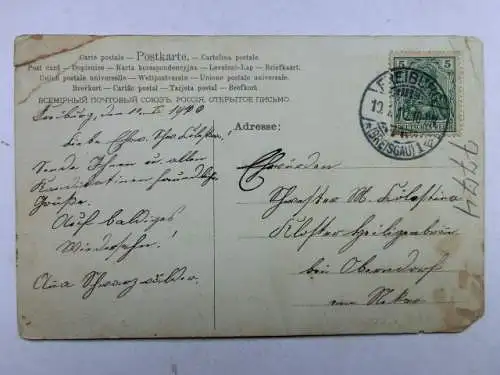 Carte postale - Postkarte - Cartolina postale
Post card - Dopisnice - Karta korespondencyjna - Levelező-Lap - Briefkaart
Union postale universelle - Weltpostverein - Unione postale universale.
Brevkort - Cartão postal - Tarjeta postal - Brefkort
ВСЕМІРНЫЙ ПОЧТОВЫЙ СОЮЗЪ. РОССІЯ. ОТКРЫТОЕ ПИСЬМО.
Freiburg, den
Liebe Ehrw. Schw. Cölestina,
Sende Ihnen u. allen
freundliche
Grüße.
Auf baldiges
Wiedersehn!
Adresse:
Ehrwürden
Schwester M. Cölestina
Kloster Heiligenbronn
bei Oberndorf
am Neckar
5 5
FREIBURG
(BREISGAU)